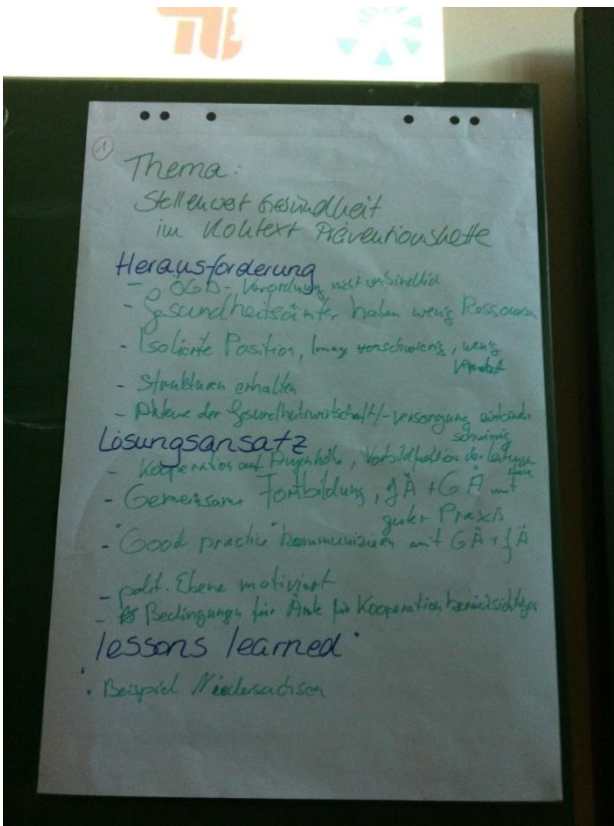 1
Thema:
Stellenwert Gesundheit
im Kontext Präventionskette
Herausforderung
- ÖGD-Verordnung nicht verbindlich
- Gesundheitsämter haben wenig Ressourcen
- Isolierte Position, wenig
vernetzt
- Strukturen erhalten
- Akteure der Gesundheitswirtschaft/-versorgung einbinden
schwierig
Lösungsansatz
- Kooperation auf Augenhöhe, Vorbildfunktion der Leitungs
ebene
- Gemeinsame Fortbildung, JÄ + GÄ mit
guter Praxis
- "Good practice" kommunizieren mit GÄ + JÄ
- polit. Ebene motiviert
- Bedingungen für Ärzte für Kooperation berücksichtigen
lessons learned
• Beispiel Niedersachsen